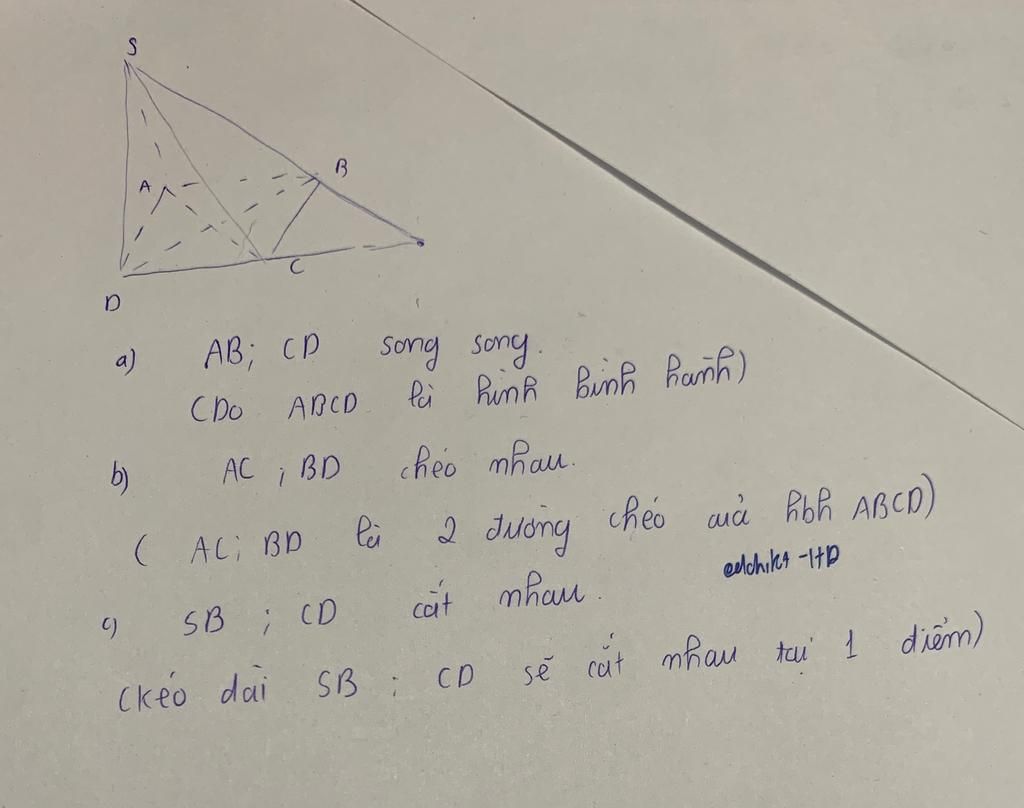 S
A
B
C
D
a) AB; CD song song.
(Do ABCD là hình bình hành)
b) AC ; BD chéo nhau.
( AC; BD là 2 đường chéo của hbh ABCD)
c) SB ; CD cắt nhau.
(kéo dài SB ; CD sẽ cắt nhau tại 1 điểm)